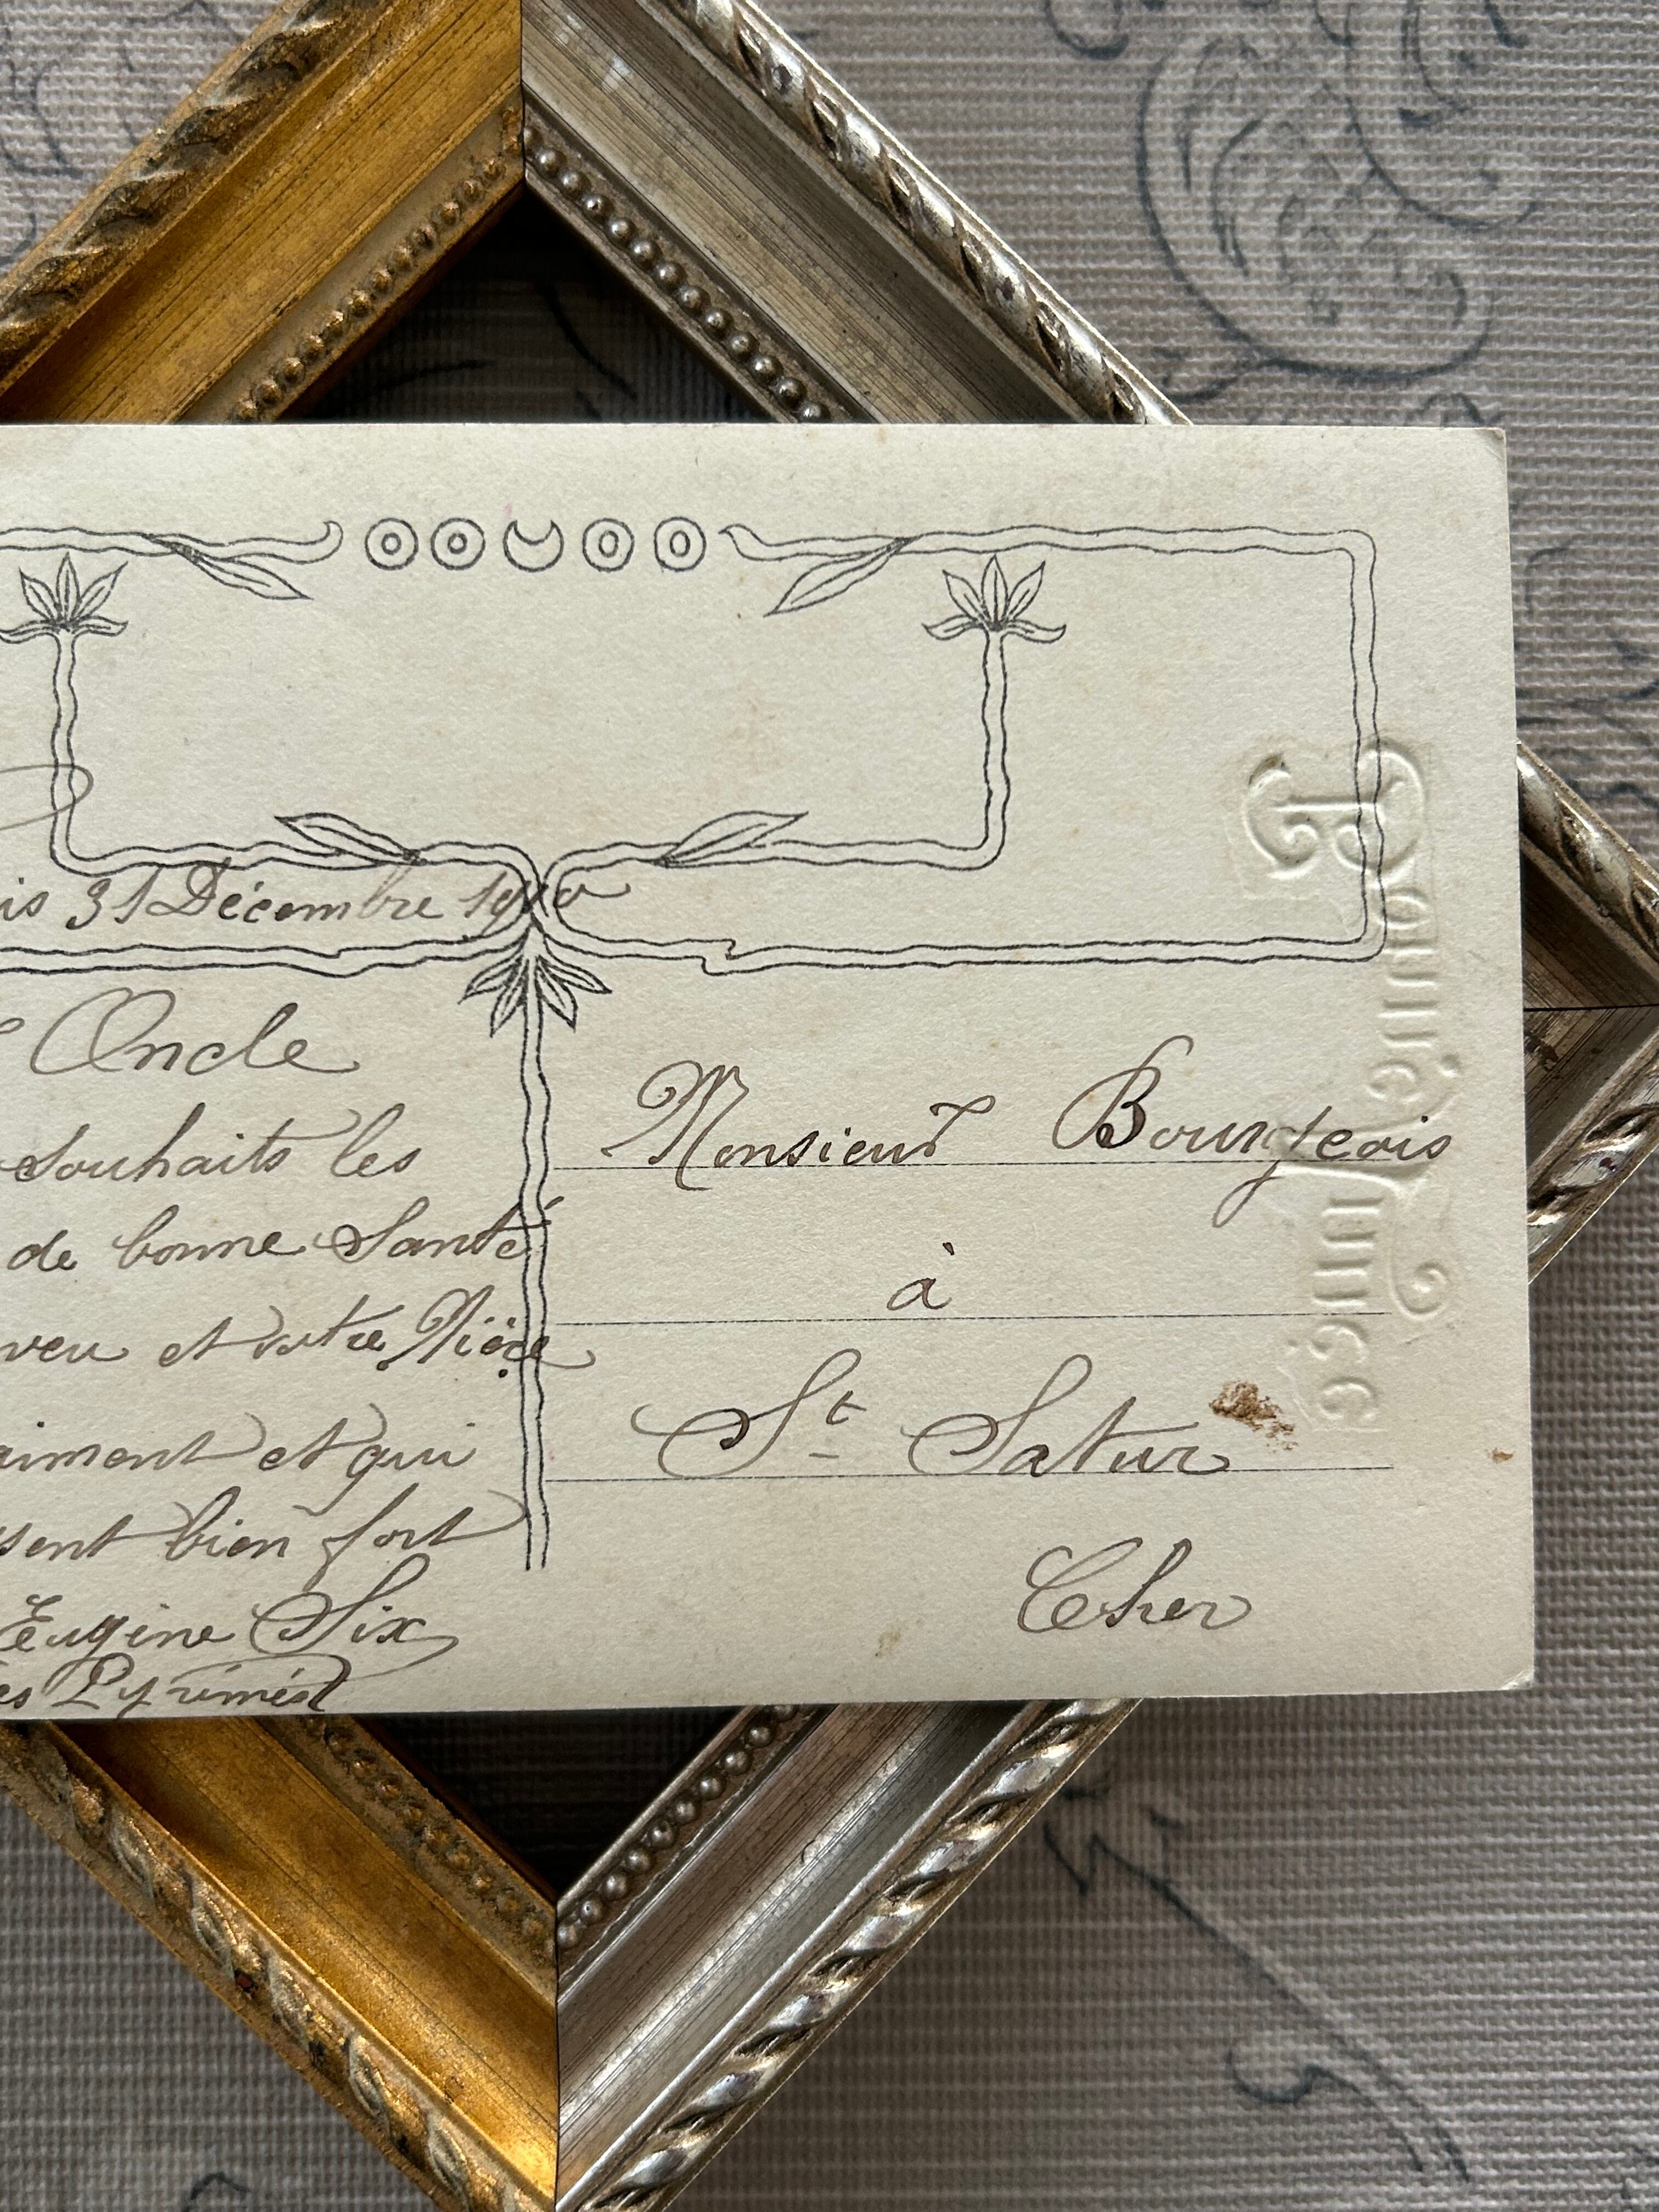 is 31 Décembre 1910
Oncle
souhaits les
de bonne Santé
veu et votre Nièce
aiment et qui
sent bien fort
Eugène Six
es Pyrénées
Monsieur Bourgeois
à
St Satur
Cher
Bonne Année